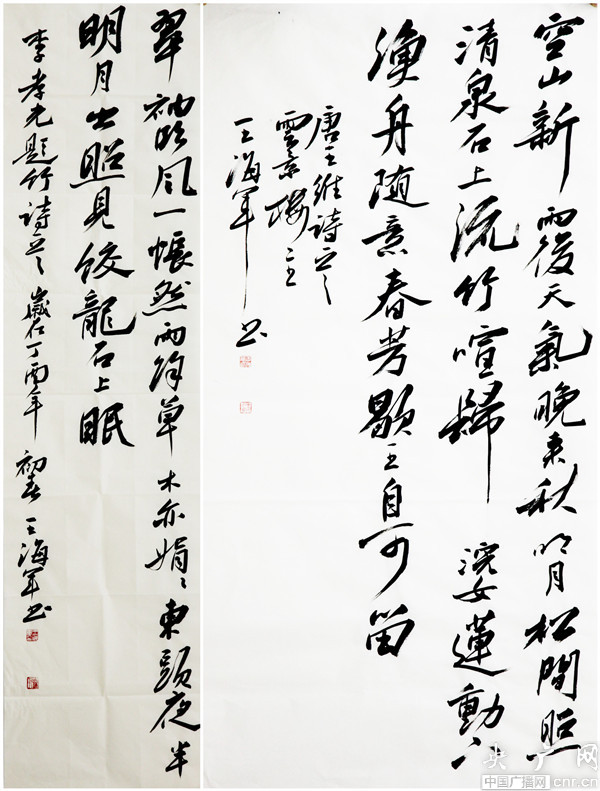 空山新雨後天氣晚来秋明月松間照
清泉石上流竹喧歸浣女蓮動下
渔舟随意春芳歇王自可留
唐王维詩之
王海军书
翠袖吹風一悵然雨馀草木亦娟々東頭夜半
明月出照見蛟龍石上眠
李孝光題竹詩之 歲在丁酉年 初春 王海军书
央广网
中国广播网 cnr.cn